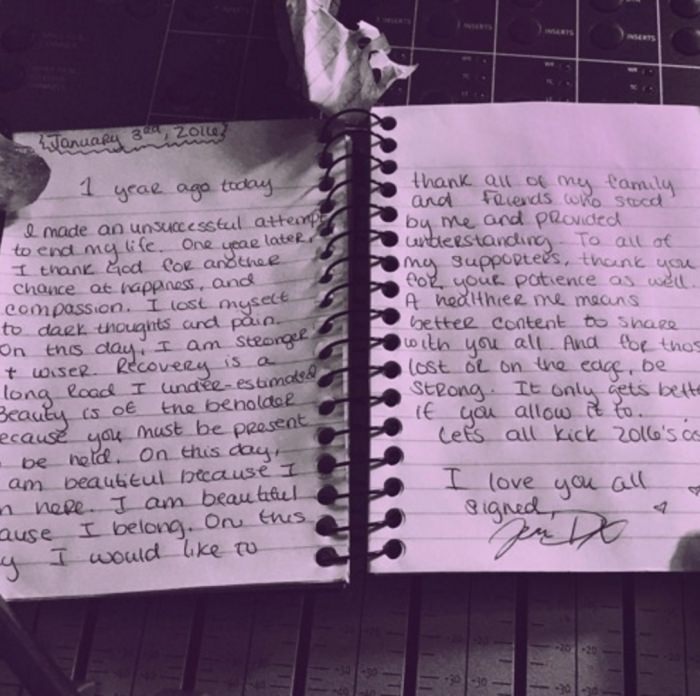 {January 3rd, 2016}
1 year ago today
I made an unsuccessful attemp
to end my life. One year later,
I thank God for another
chance at happiness, and
compassion. I lost myself
to dark thoughts and pain.
On this day, I am stronger
+ wiser. Recovery is a
long road I under-estimated
Beauty is of the beholder
ecause you must be present
be held. On this day,
am beautiful because I
n here. I am beautiful
ause I belong. On this
y I would like to
thank all of my family
and friends who stood
by me and provided
understanding. To all of
my supporters, thank you
for your patience as well.
A healthier me means
better content to share
with you all. And for thos
lost or on the edge, be
strong. It only gets bett
if you allow it to.
Let's all kick 2016's as
I love you all
signed,
INSERTS
INSERTS
INSERTS